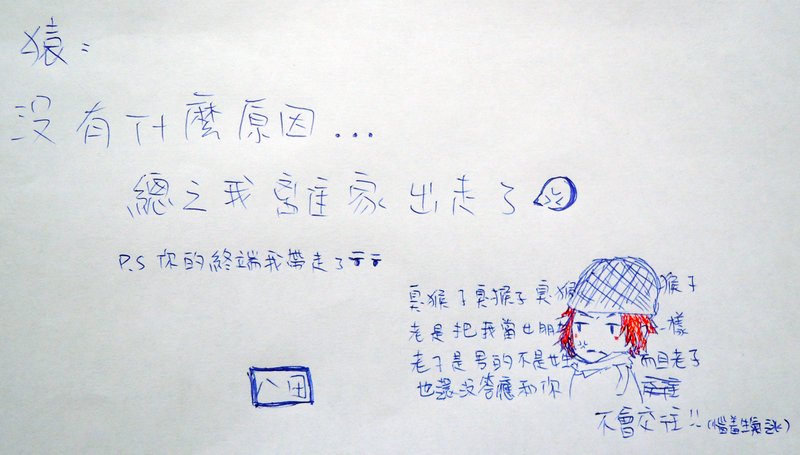 猿：
沒有什麼原因...
總之我離家出走了
P.S 你的終端我帶走了
臭猴子臭猴子臭猴 猴子
老是把我當女朋 一樣
老子是男的不是女生 而且老子
也還沒答應和你
不會交往!!(惱羞生氣)
八田